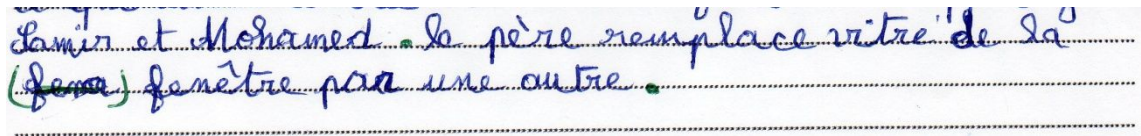 Samir et Mohamed. le père remplace vitre de la
(fene) fenêtre par une autre.